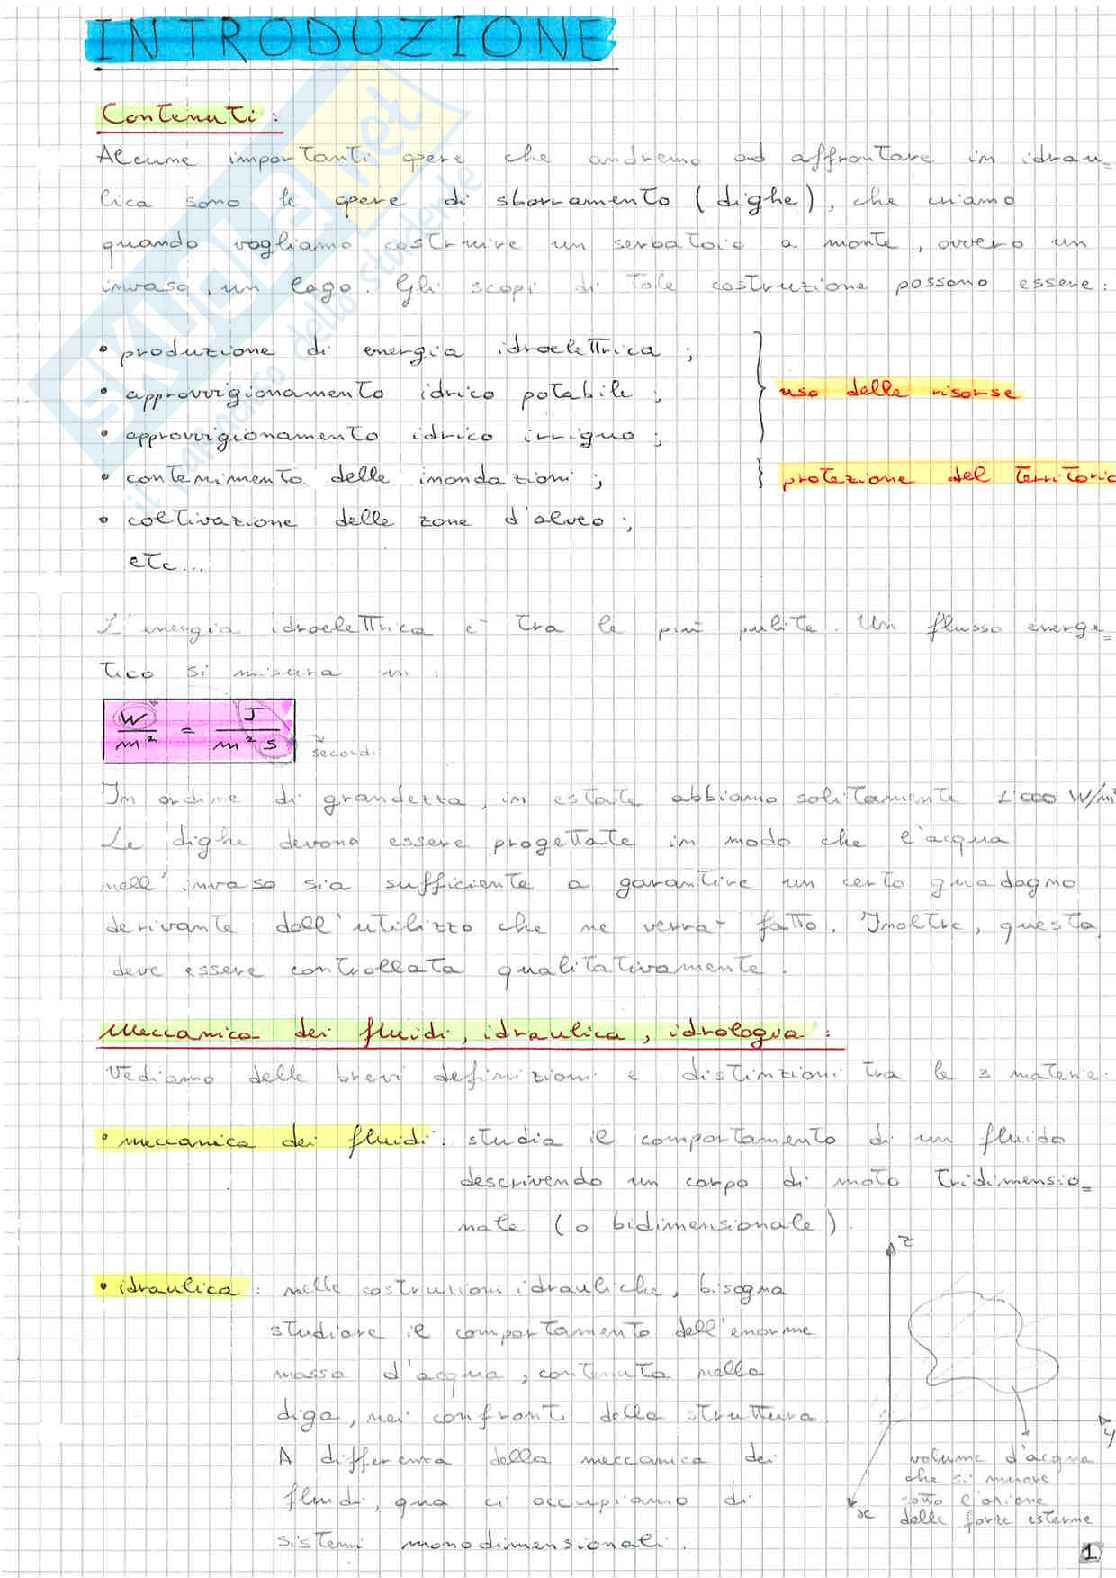 INTRODUZIONE
Contenuti:
Alcune importanti opere che andremo ad affrontare in idrau=
lica sono le opere di sbarramento (dighe), che usiamo
quando vogliamo costruire un serbatoio a monte, ovvero un
invaso, un lago. Gli scopi di tale costruzione possono essere:
• produzione di energia idroelettrica;
• approvvigionamento idrico potabile;
uso delle risorse
• approvvigionamento idrico irriguo;
• contenimento delle inondazioni;
protezione del territorio
• coltivazione delle zone d'alveo;
etc...
L'energia idroelettrica è tra le più pulite. Un flusso energe=
tico si misura in:
W/m² = J/m² s
secondi
In ordine di grandezza, in estate abbiamo solitamente 1'000 W/m²
Le dighe devono essere progettate in modo che l'acqua
nell'invaso sia sufficiente a garantire un certo guadagno
derivante dall'utilizzo che ne verrà fatto. Inoltre, questa
deve essere controllata qualitativamente.
Meccanica dei fluidi, idraulica, idrologia:
Vediamo delle brevi definizioni e distinzioni tra le 3 materie.
• meccanica dei fluidi: studia il comportamento di un fluido
descrivendo un campo di moto tridimensio=
nale (o bidimensionale).
z
• idraulica: nelle costruzioni idrauliche, bisogna
studiare il comportamento dell'enorme
massa d'acqua, contenuta nella
diga, nei confronti della struttura.
y
A differenza della meccanica dei
fluidi, qua ci occupiamo di
sistemi monodimensionali.
volume d'acqua
che si muove
sotto l'azione
delle forze esterne
x
1
EXTUIIA.net
il paradiso dello studente